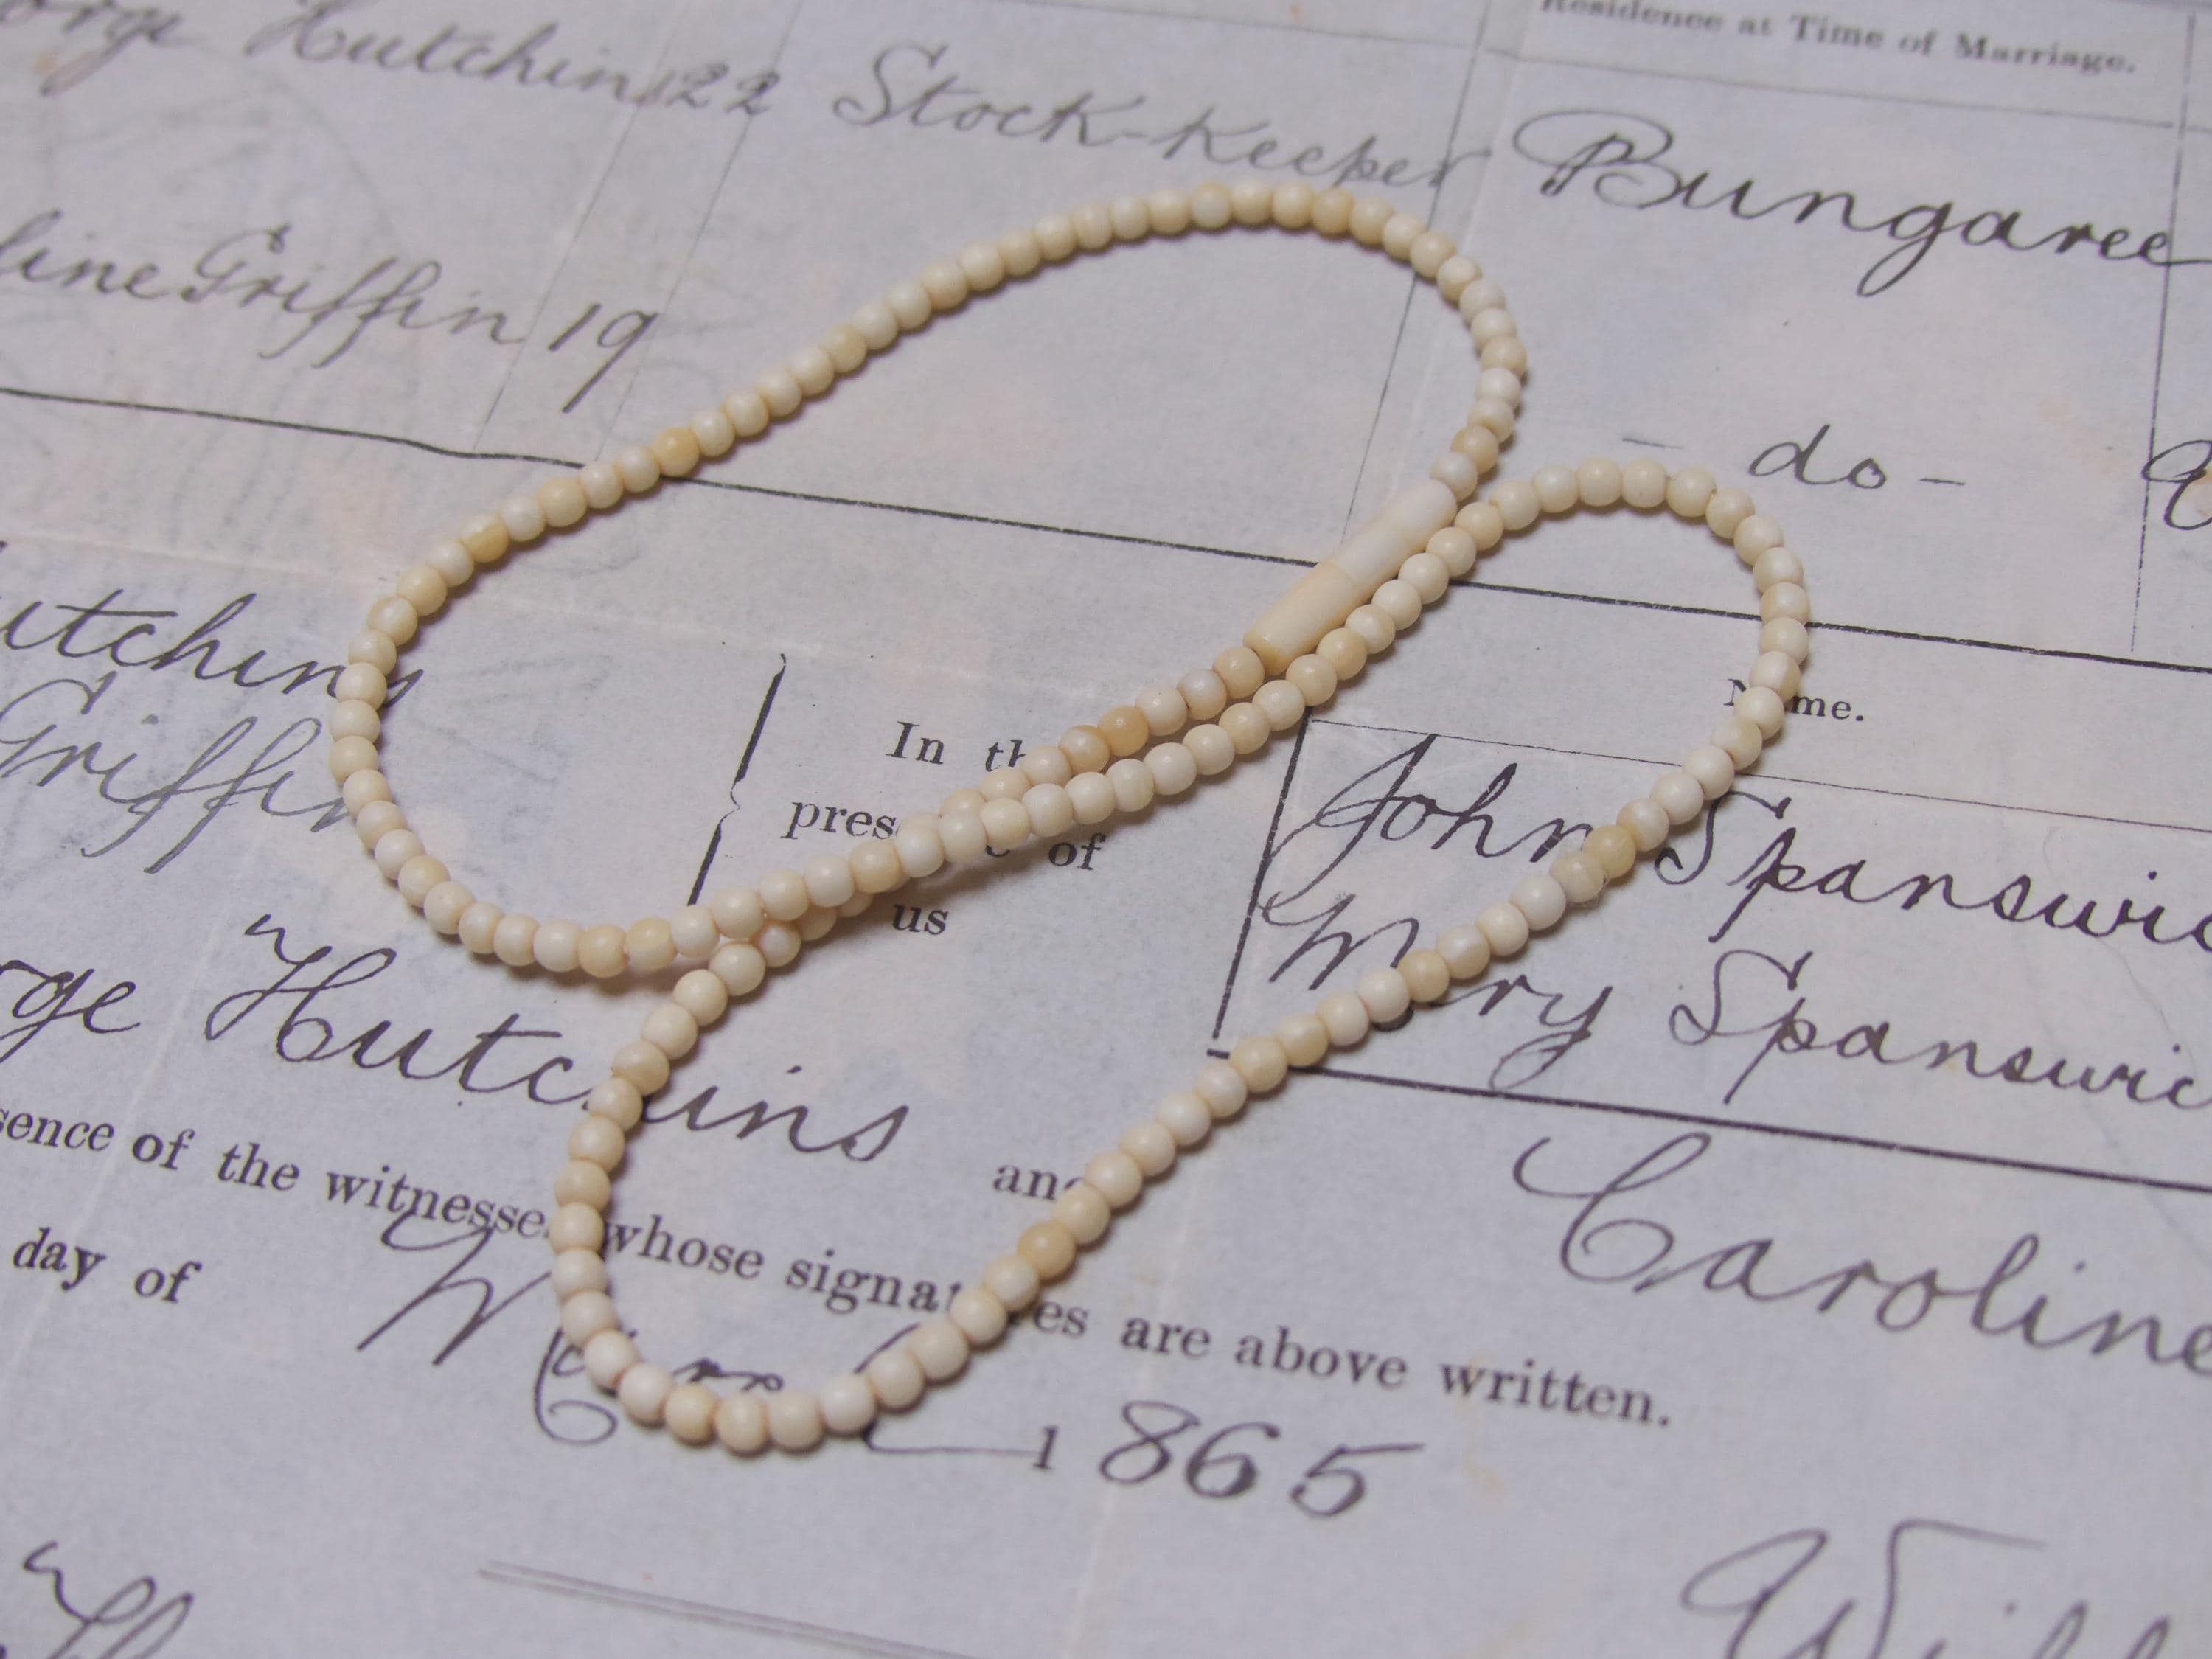 Residence at Time of Marriage.
Hutchins 22 Stock-Keeper Bungaree
line Griffin 19 - do -
utchins
Name.
Griffin
In th
pres of
us
John Spanswic
Mary Spanswic
rge Hutchins and Caroline
sence of the witnesses whose signatures are above written.
day of March 1865